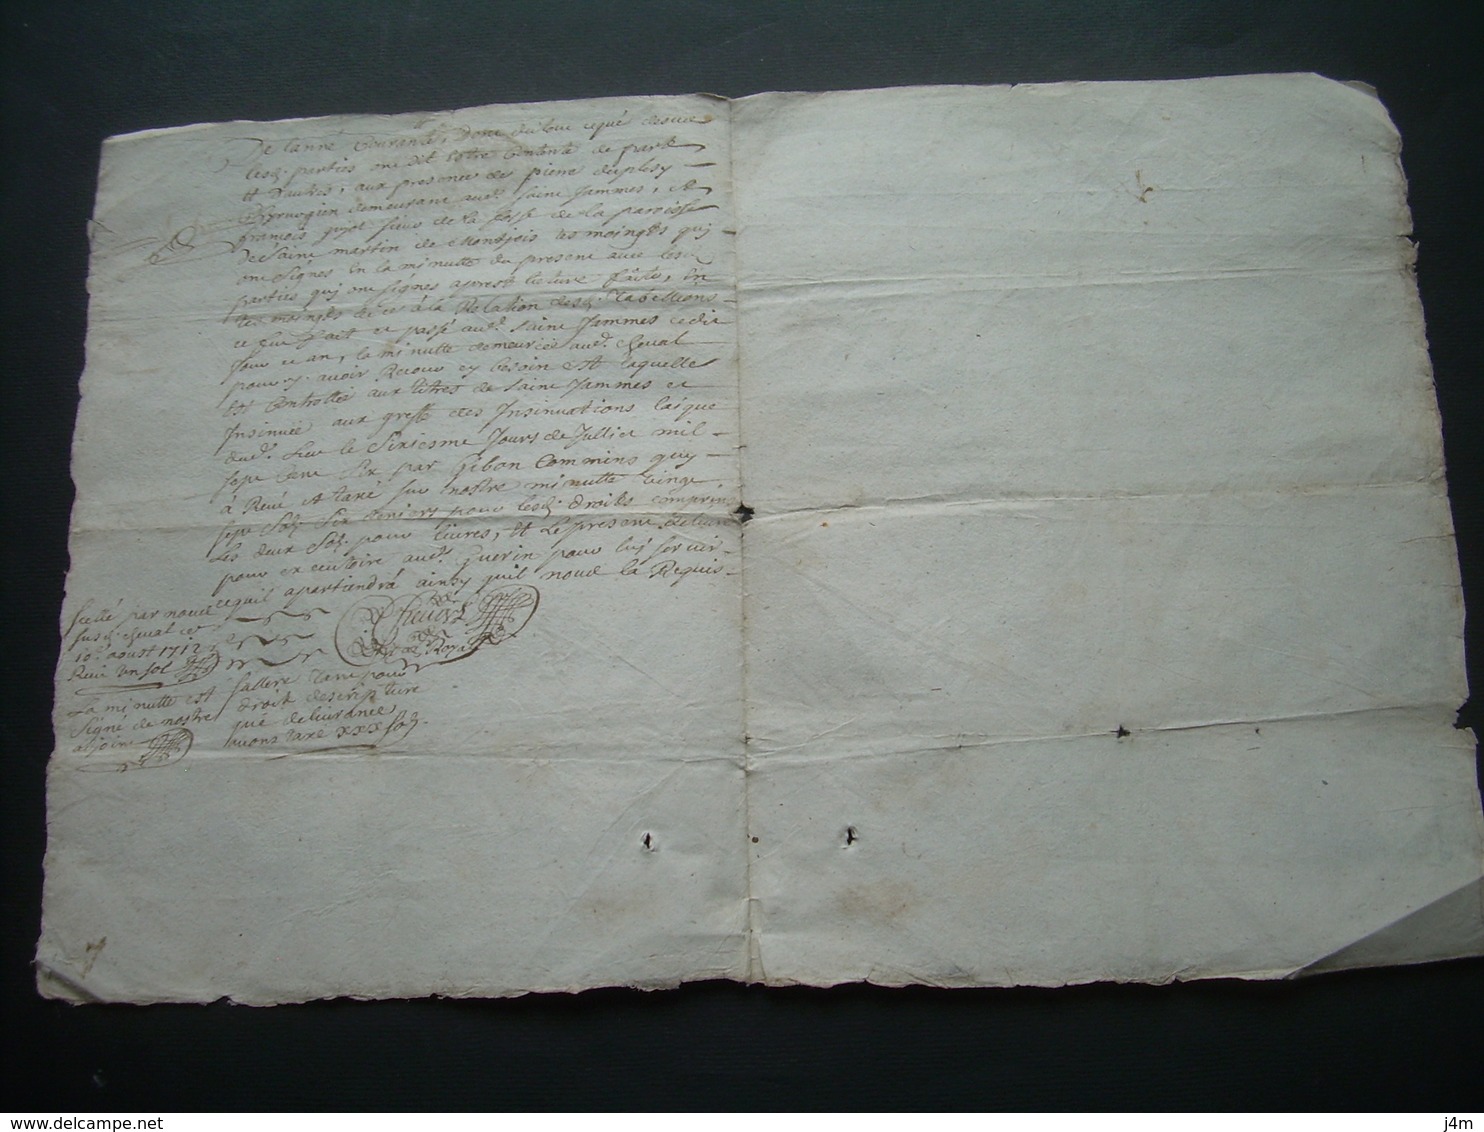 De lanné Courante, dont du tout ce que dessus
lesd. parties ont dit estre Contente de part
et dautres, aux presence de pierre duplesy
chirurgien demeurant aud. saint Jammes, et
francois guyot sieur de la fosse de la paroisse
de saint martin de Montjois tesmoingts quj
ont signes En la minutte du presant avec lesd.
parties quj ont signes aprest lecture faite, En
tesmoingts de ce à la Relation desd. Tabellions
ce que fait et passé aud. saint Jammes cedit
Jour et an, la minutte demeurée aud. cheval
pour y avoir Recour ey besoin est laquelle
est Controllée aux titres de saint Jammes et
Insinuée aux greffe des Insinuations laique
dud. lieu le Sixiesme Jours de Juillet mil
sept cent six par Gibon Commins quy
à Reçu et taxé sur nostre minutte vingt
sept solz six deniers pour lesd. droits comprins
les deux solz pour livres, et le present delivré
pour executoire aud. Guerin pour luj servir
ce quil apartiendrá ainsy quil nous la Requis
Scellé par nous
susd. cheval ce
10e. aoust 1712
Reçu un sol
Cheval
Royal
La minutte est
signé de nostre
adjoint
sallere taxe pour
droit descripture
que delivrance
avons taxe xxx solz.
DELCAMPE.net
j4m